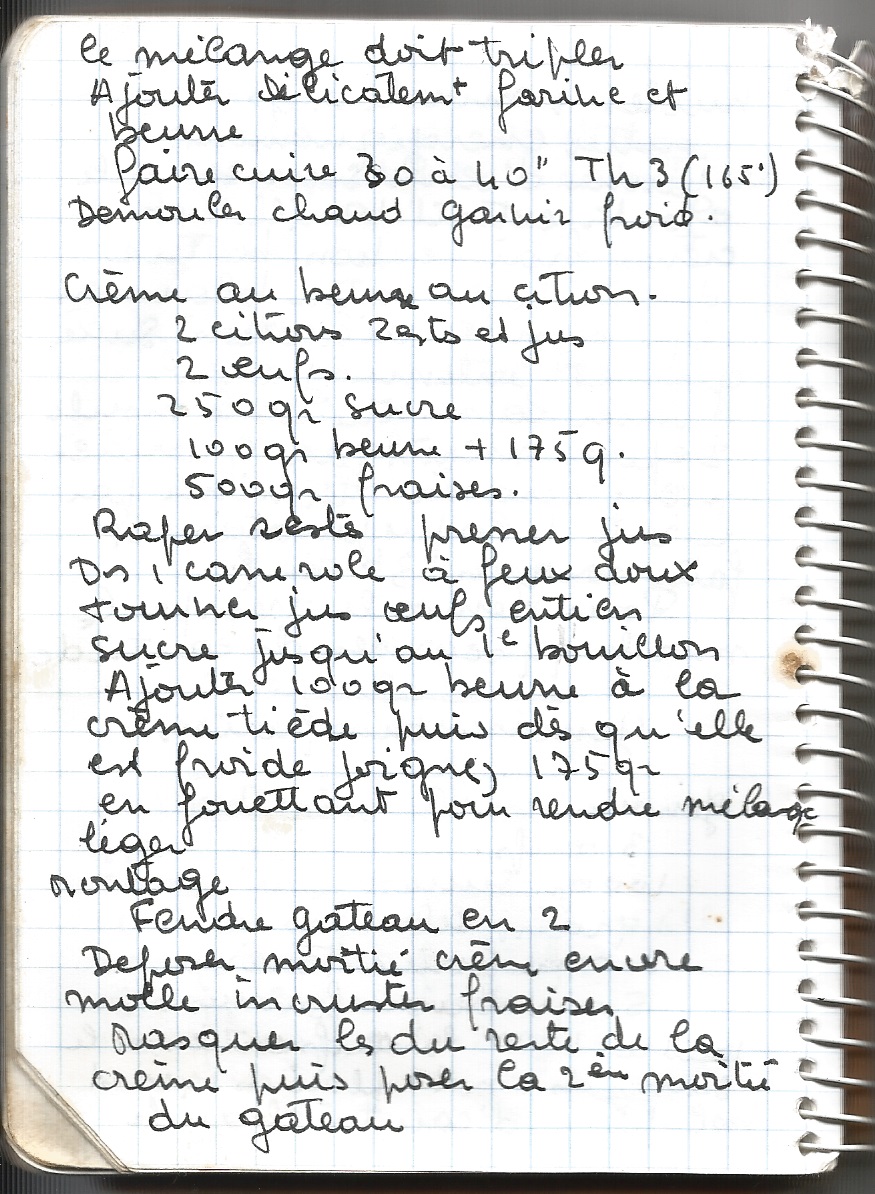 le mélange doit tripler
Ajouter délicatemt farine et
beurre
faire cuire 30 à 40" Th 3 (165°)
Demouler chaud garnir froid.
Crème au beurre au citron.
2 citrons zests et jus
2 œufs.
250gr sucre
100gr beurre + 175g.
500gr fraises.
Raper zests presser jus
Ds 1 casserole à feux doux
tourner jus œufs entiers
sucre jusqu'au 1e bouillon
Ajouter 100gr beurre à la
crème tiède puis dès qu'elle
est froide joignez 175gr
en fouettant pour rendre mélange
léger
Montage
Fendre gateau en 2
Deposer moitié crème encore
molle incruster fraises
Masquer les du reste de la
crème puis poser la 2èm moitié
du gateau